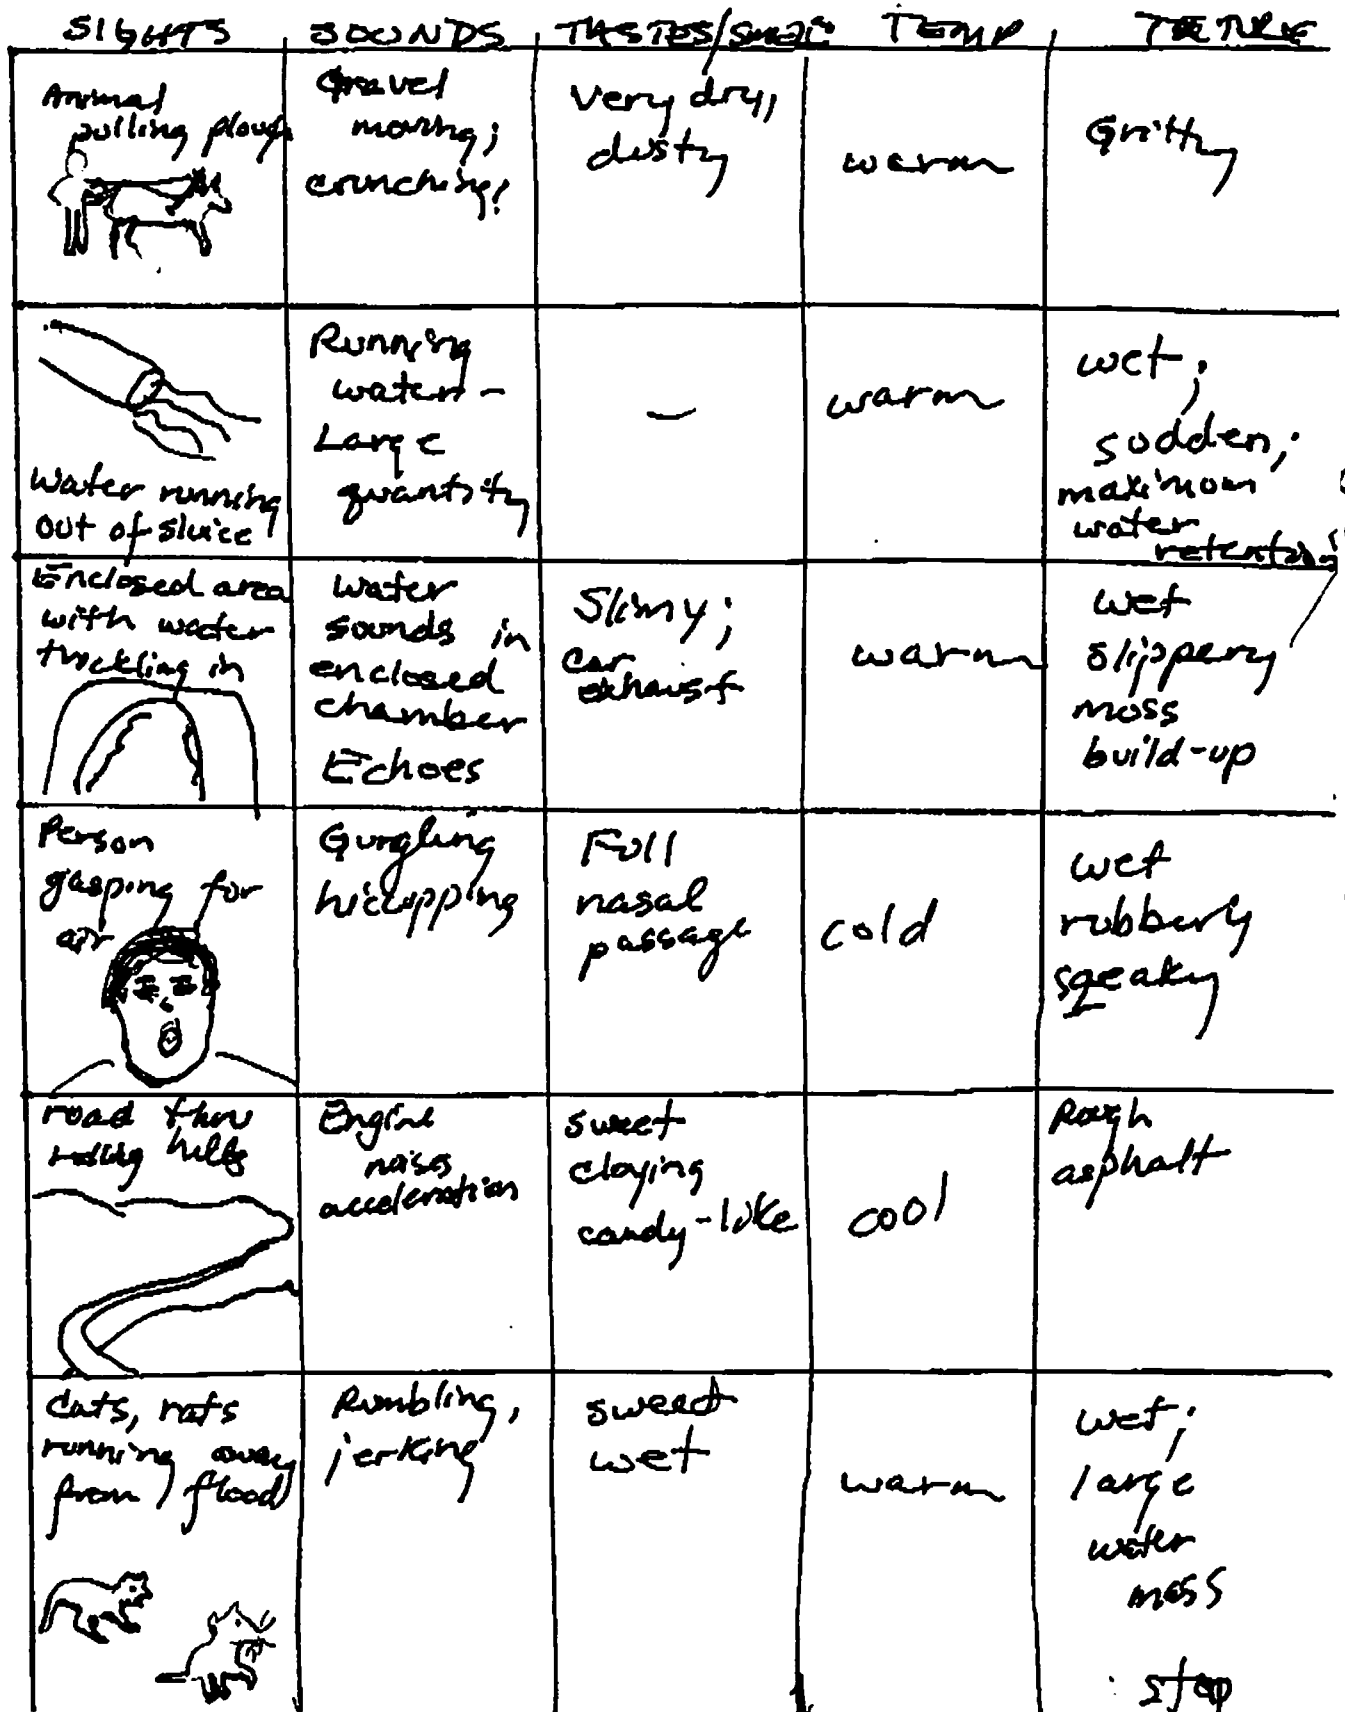 SIGHTS SOUNDS TASTES/SMELL TEMP TEXTURE
Animal
pulling plough
Gravel
moving;
crunching!
Very dry,
dusty
warm
Gritty
Water running
out of sluice
Running
water -
Large
quantity
—
warm
wet;
sodden;
maximum
water
retention
Enclosed area
with water
trickling in
water
sounds in
enclosed
chamber
Echoes
Slimy;
car
exhaust
warm
wet
slippery
moss
build-up
Person
gasping for
air
Gurgling
hiccupping
Full
nasal
passage
cold
wet
rubbery
sqeaky
road thru
rolling hills
Engine
noises
acceleration
sweet
cloying
candy-like
cool
Rough
asphalt
Cats, rats
running away
from flood
Rumbling,
jerking
sweet
wet
warm
wet;
large
water
mass
stop